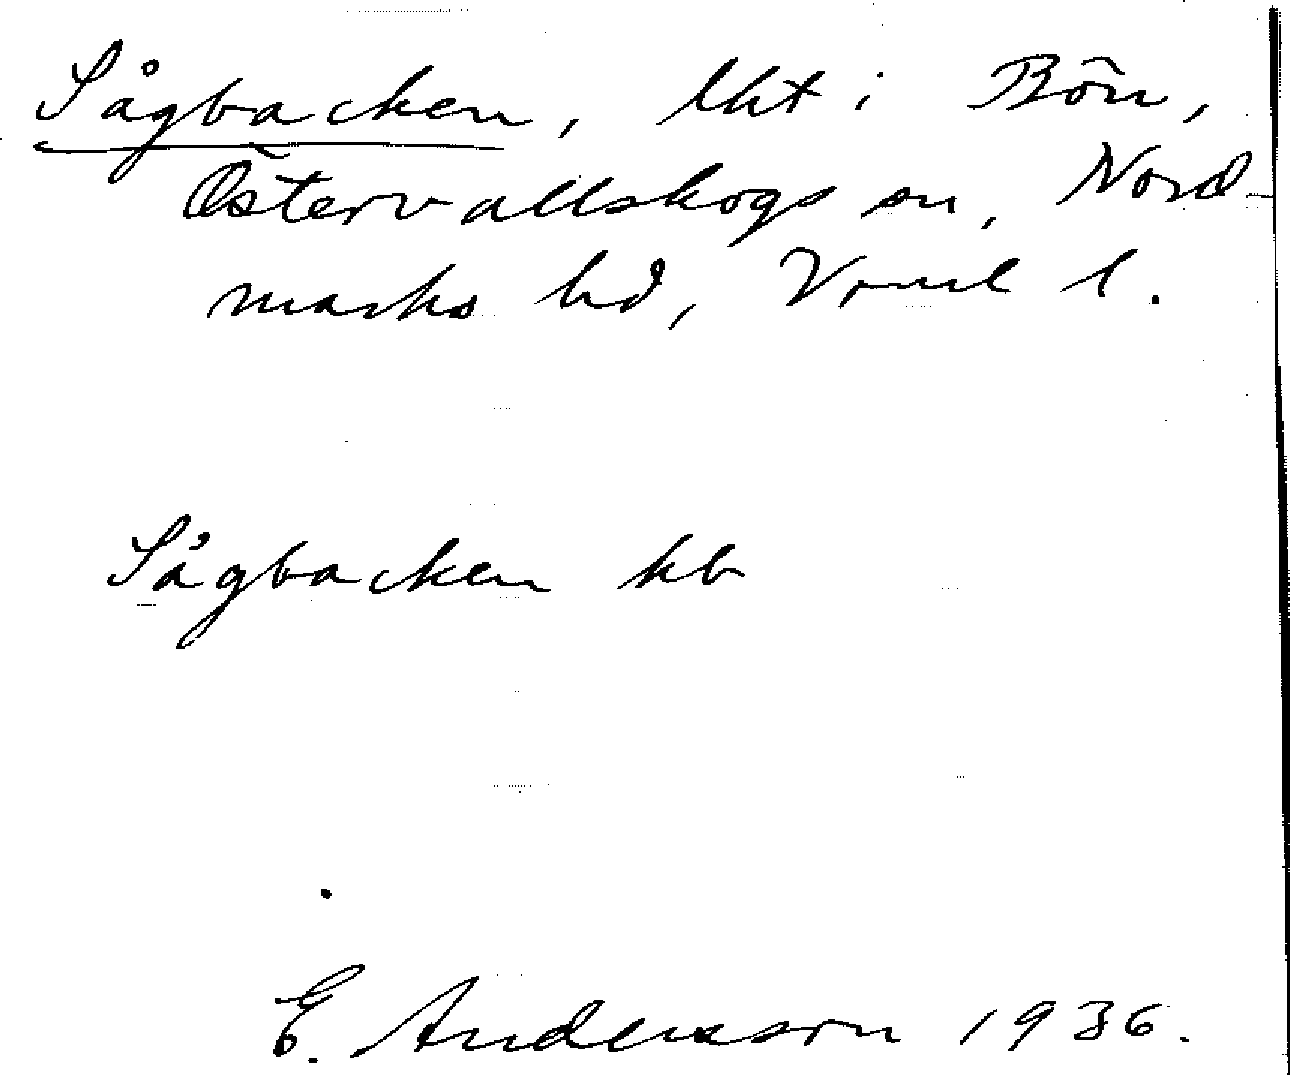 Sågbacken, lht i Bön,
Östervallskogs sn, Nord-
marks hd, Vrml l.
Sågbacken kb
E. Andersson 1936.